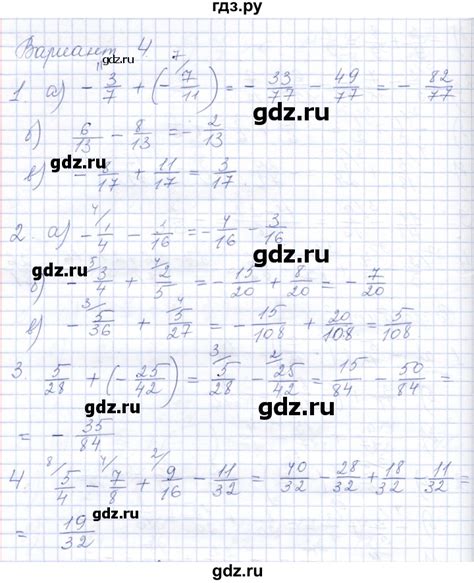 гдз.ру
Вариант 4
1 а) - 3/7 + (- 7/11) = - 33/77 - 49/77 = - 82/77
gdz.ru
б) 6/13 - 8/13 = - 2/13
gdz.ru
в) - 8/17 + 11/17 = 3/17
gdz.ru
2. а) - 1/4 - 1/16 = - 4/16 - 3/16
gdz.ru
gdz.ru
б) - 3/4 + 2/5 = - 15/20 + 8/20 = - 7/20
в) - 5/36 + 5/27 = - 15/108 + 20/108 = 5/108
gdz.ru
gdz.ru
3. 5/28 + (- 25/42) = 5/28 - 25/42 = 15/84 - 50/84 =
gdz.ru
= - 35/84
gdz.ru
4. 5/4 - 7/8 + 9/16 - 11/32 = 40/32 - 28/32 + 18/32 - 11/32 =
gdz.ru
gdz.ru
= 19/32
gdz.ru